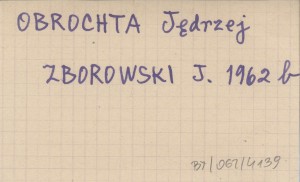 OBROCHTA Jędrzej
ZBOROWSKI J. 1962 b
BJ/061/4139